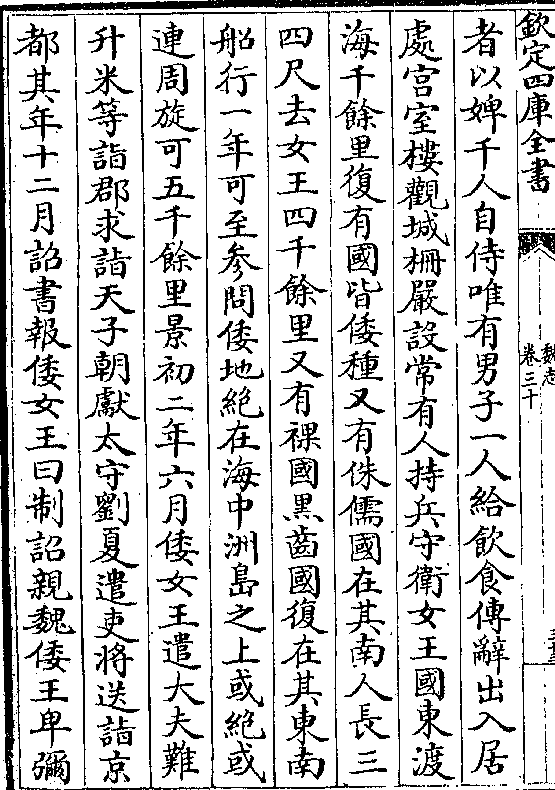 欽定四庫全書
魏志
卷三十
者以婢千人自侍唯有男子一人給飲食傳辭出入居
處宮室樓觀城柵嚴設常有人持兵守衛女王國東渡
海千餘里復有國皆倭種又有侏儒國在其南人長三
四尺去女王四千餘里又有裸國黑齒國復在其東南
船行一年可至參問倭地絕在海中洲島之上或絕或
連周旋可五千餘里景初二年六月倭女王遣大夫難
升米等詣郡求詣天子朝獻太守劉夏遣吏將送詣京
都其年十二月詔書報倭女王曰制詔親魏倭王卑彌